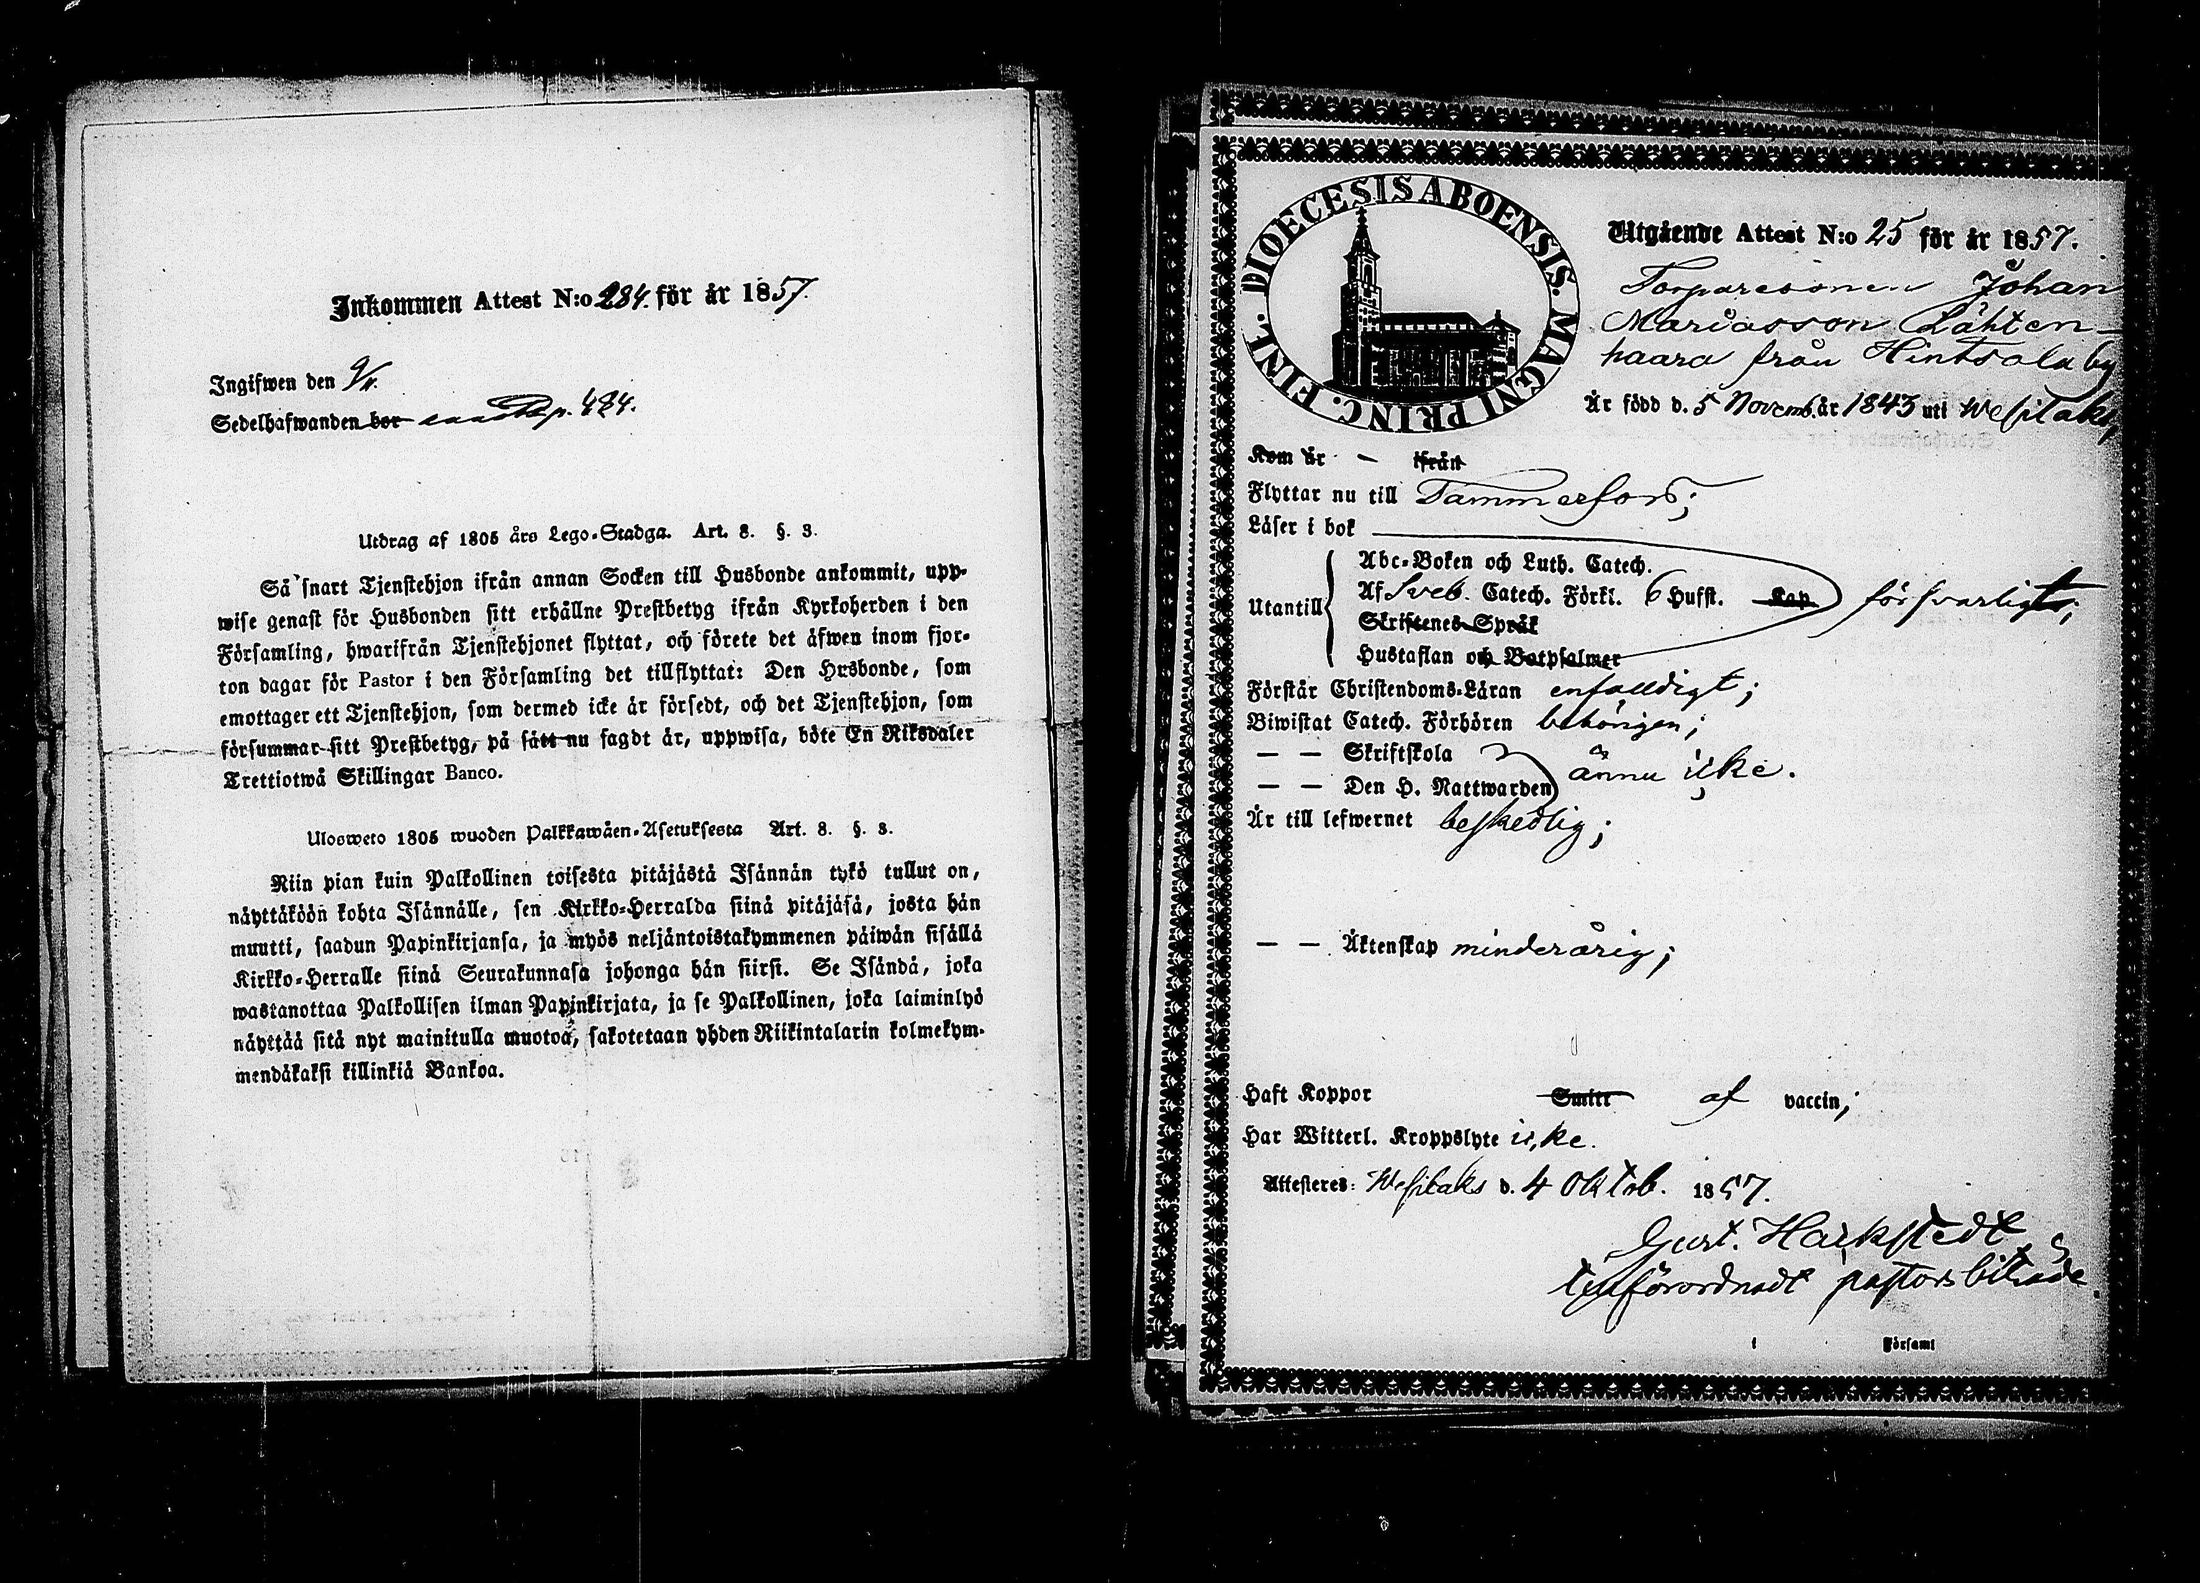 Inkommen Attest N:o 284. för år 1857.
Ingifwen den 9/11.
Sedelhafwanden bor Pag. 484.
Utdrag af 1805 års Lego-Stadga. Art. 8. §. 3.
Så snart Tjenstehjon ifrån annan Socken till Husbonde ankommit, upp-
wise genast för Husbonden sitt erhållne Prestbetyg ifrån Kyrkoherden i den
Församling, hwarifrån Tjenstehjonet flyttat, och förete det äfwen inom fjor-
ton dagar för Pastor i den Församling det tillflyttat: Den Husbonde, som
emottager ett Tjenstehjon, som dermed icke är försedt, och det Tjenstehjon, som
försummar sitt Prestbetyg, på sätt nu sagdt är, uppwisa, böte En Riksdaler
Trettiotwå Skillingar Banco.
Ulosweto 1805 wuoden Palkkawäen-Asetuksesta Art. 8. §. 3.
Niin pian kuin Palkollinen toisesta pitäjästä Isännän tykö tullut on,
näyttäköön kohta Isännälle, sen Kirkko-Herralda siinä pitäjäsä, josta hän
muutti, saadun Papinkirjansa, ja myös neljäntoistakymmenen päiwän sisällä
Kirkko-Herralle siinä Seurakunnasa johonga hän siirsi. Se Isändä, joka
wastanottaa Palkollisen ilman Papinkirjata, ja se Palkollinen, joka laiminlyö
näyttää sitä nyt mainitulla muotoa, sakotetaan yhden Riikintalarin kolmekym-
mendäkaksi killinkiä Bankoa.
DIOECESIS ABOENSIS. MAGNI PRINC. FINL.
Utgående Attest N:o 25 för år 1857.
Torparesonen Johan
Mariasson Lähten-
haara från Hintsala by
Är född d. 5 Novemb. år 1843 uti Wesilaks,
Kom år - ifrån
Flyttar nu till Tammerfors;
Läser i bok
Utantill
Abc-Boken och Luth. Catech.
Af Sveb. Catech. Förkl. 6 Hufst. Kap försvarligt;
Skriftenes Språk
Hustaflan och Botpsalmer
Förstår Christendoms-Läran enfaldigt;
Biwistat Catech. Förhören behörigen;
— — Skriftskola
— — Den H. Nattwarden ännu icke.
Är till lefwernet beskedlig;
— — Äktenskap minderårig;
Haft Koppor Smitt af vaccin;
Har Witterl. Kroppslyte icke.
Attesteres: Wesilaks d. 4 Oktob. 1857.
Gust. Harkstedt
förordnadt pastorsbiträde
i Församl